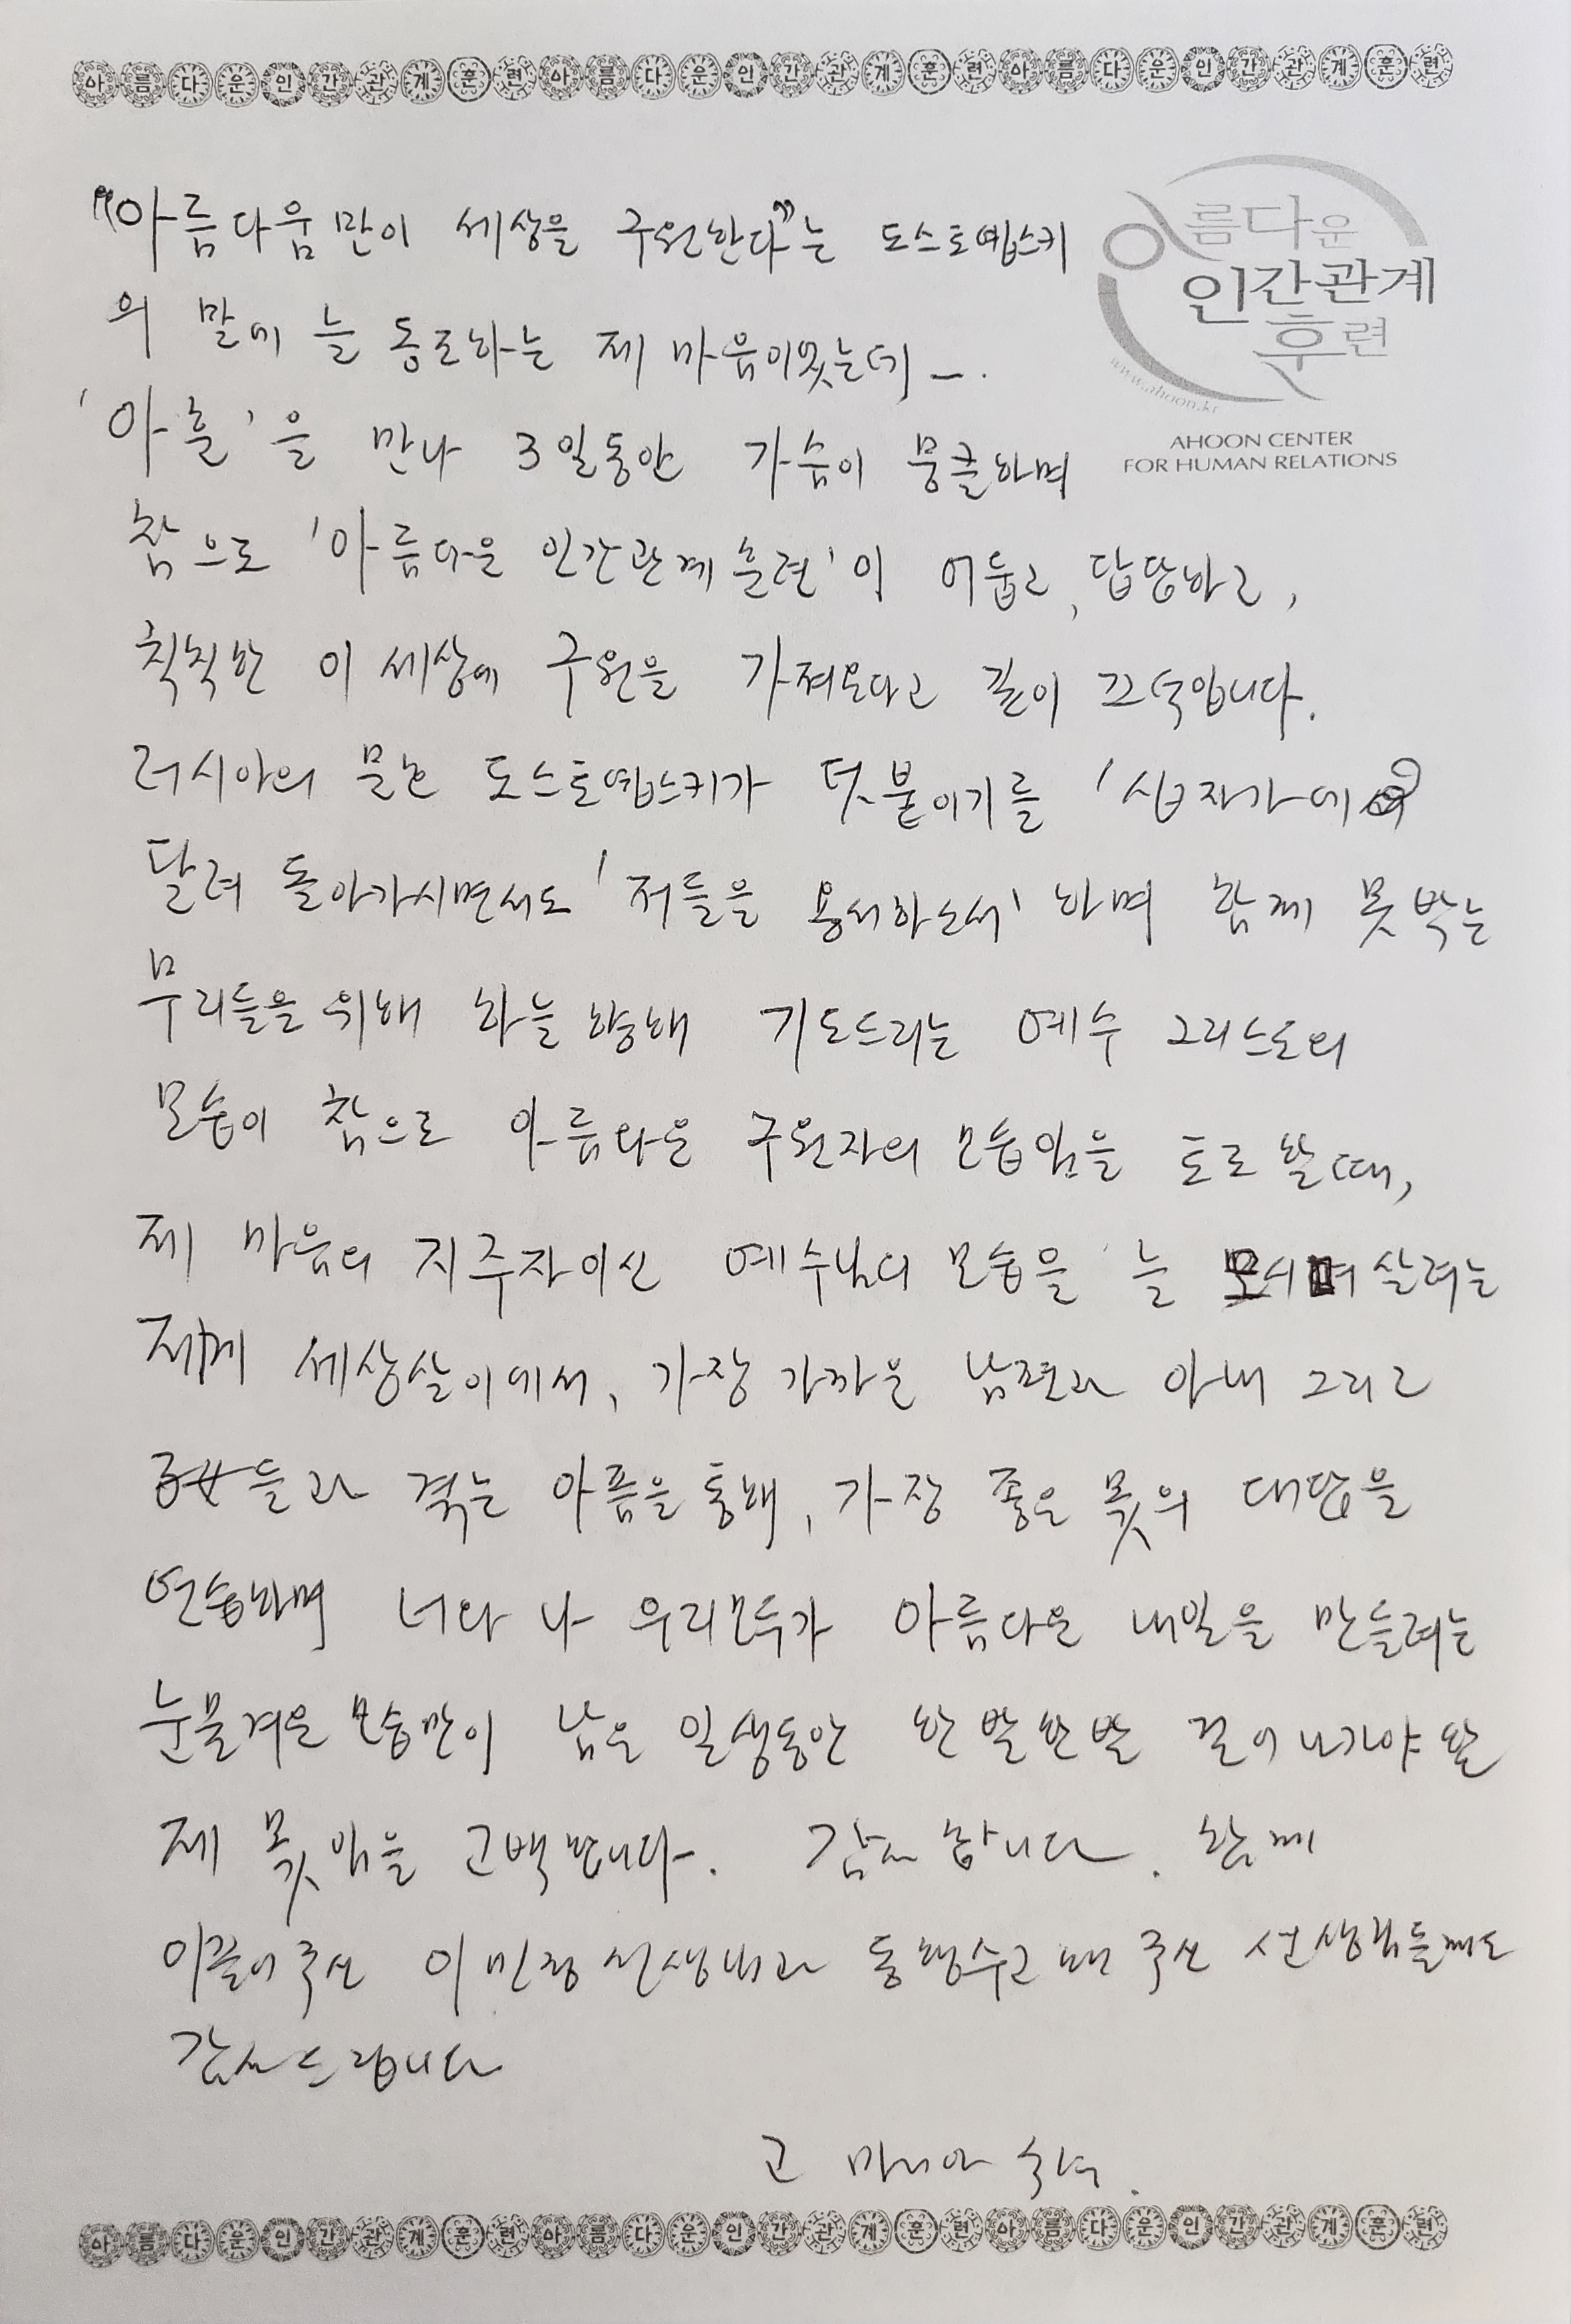 아름다운인간관계훈련아름다운인간관계훈련아름다운인간관계훈련
"아름다움만이 세상을 구원한다"는 도스토옙스키
의 말에 늘 동조하는 제 마음이었는데 ㅡ.
'아훈'을 만나 3일동안 가슴이 뭉클하며
참으로 '아름다운 인간관계훈련'이 어둡고, 답답하고,
칙칙한 이 세상에 구원을 가져온다고 깊이 끄덕입니다.
러시아의 문호 도스토옙스키가 덧붙이기를 '십자가에
달려 돌아가시면서도 '저들을 용서하소서' 하며 함께 못박는
무리들을 위해 하늘 향해 기도드리는 예수 그리스도의
모습이 참으로 아름다운 구원자의 모습임을 토로할때,
제 마음의 지주자이신 예수님의 모습을 늘 모시며 살려는
세상살이에서, 가장 가까운 남편과 아내 그리고
子女들과 겪는 아픔을 통해, 가장 좋은 몫의 대답을
연습하며 너와 나 우리모두가 아름다운 내일을 만들려는
눈물겨운 모습만이 남은 일생동안 한발한발 걸어나가야 할
제 몫임을 고백합니다. 감사합니다. 함께
이끌어주신 이민정 선생님과 동행수고해 주신 선생님들께도
감사드립니다
고 마리아 수녀.
아름다운
인간관계
훈련
www.ahoon.kr
AHOON CENTER
FOR HUMAN RELATIONS
아름다운인간관계훈련아름다운인간관계훈련아름다운인간관계훈련